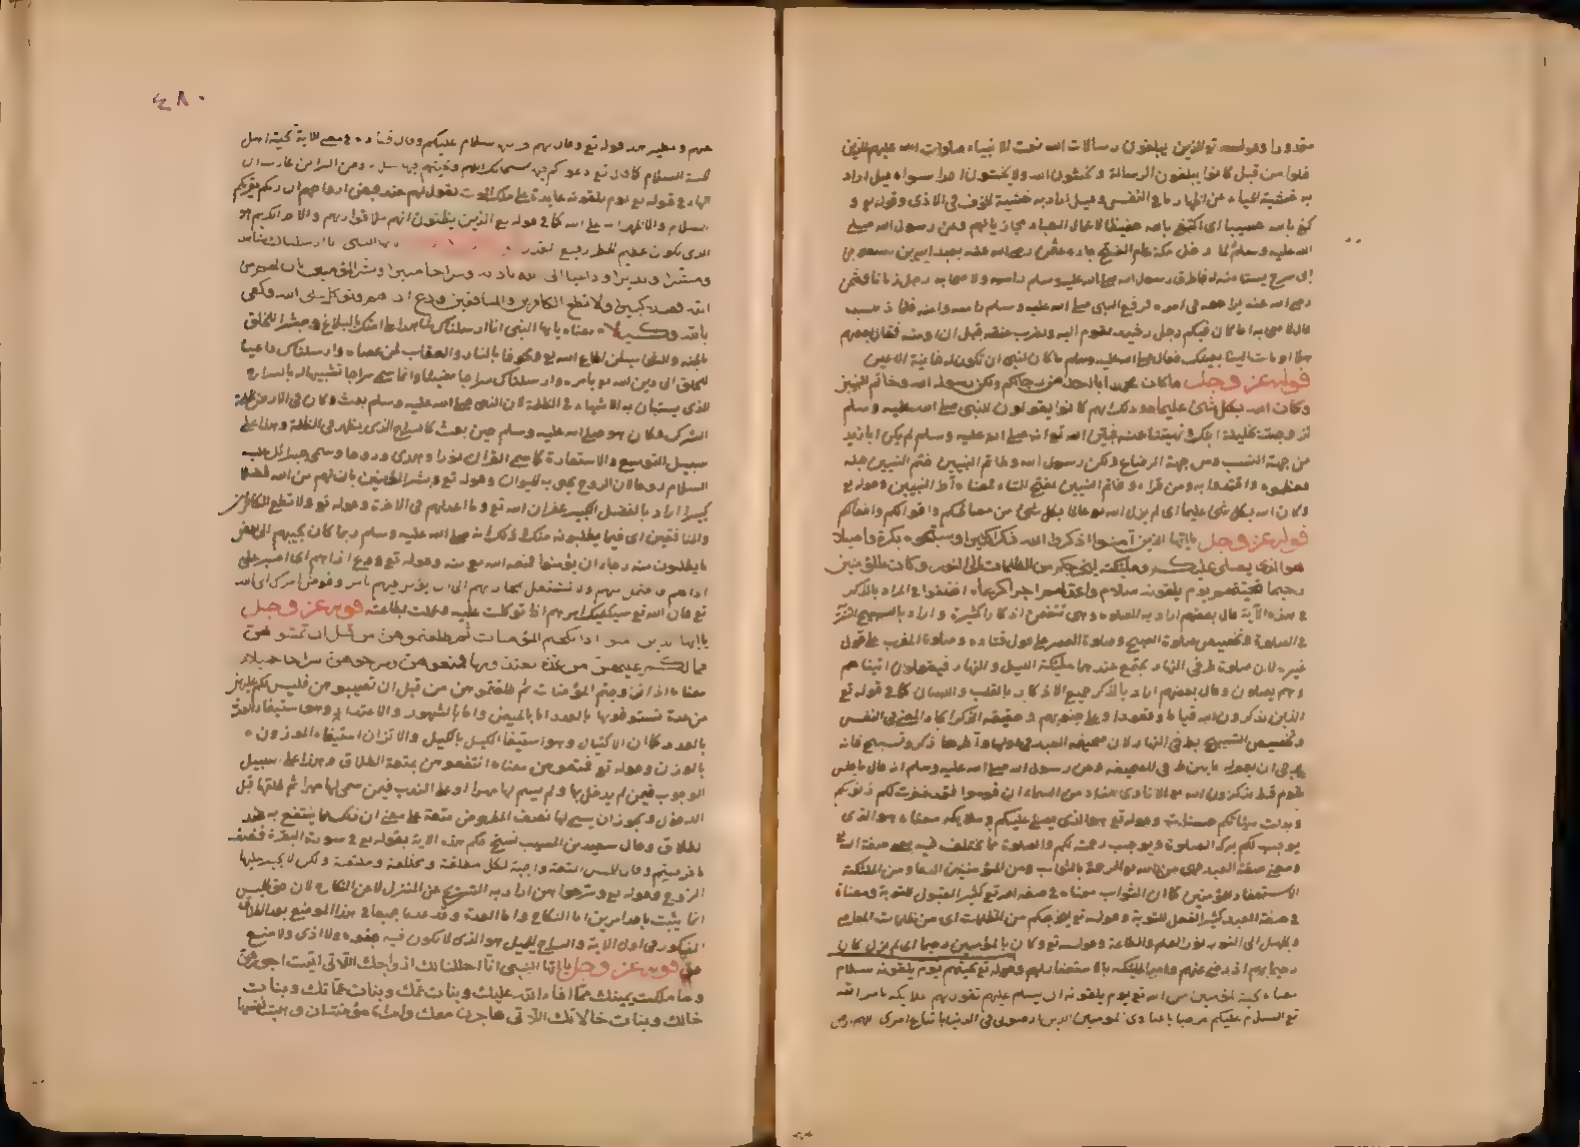 مقدورا وقوله تع الذين يبلغون رسالات الله نعت الانبياء صلوات الله عليهم الذين
خلوا من قبل كانوا يبلغون الرسالة ويخشون الله ولا يخشون احدا سواه قيل اراد
به خشية الحياء عن اظهار ما في النفس وقيل اراد به خشية الخوف في الاذى وقوله تع و
كفى بالله حسيبا اى اكتفى بالله حفيظا لاعمال العباد مجازيا لهم وعن رسول الله صلى
الله عليه وسلم لما دخل مكة عام الفتح جاءه عثمن رضى الله عنه بعبد الله بن سعد بن
ابى سرح يستأمنه له فاطرق رسول الله صلى الله عليه وسلم رأسه ولا صحابه رجل زمانا فعثمن
رضى الله عنه يراجعه في امره فرفع النبى صلى الله عليه وسلم رأسه وامنه فلما ذهب
قال لاصحابه اما كان فيكم رجل رشيد يقوم اليه ويضرب عنقه قبل ان اومنه فقال بعضهم
هلا اومأت الينا بعينك فقال صلى الله عليه وسلم ما كان لنبى ان تكون له خائنة الاعين
قوله عز وجل ما كان محمد ابا احد من رجالكم ولكن رسول الله وخاتم النبيين
وكان الله بكل شئ عليما وذلك انهم كانوا يقولون للنبى صلى الله عليه وسلم
تزوجت حليلة ابنك ونهيتنا عنه فبين الله تع انه صلى الله عليه وسلم لم يكن ابا زيد
من جهة النسب ومن جهة الرضاع ولكن رسول الله وخاتم النبيين ختم النبيين
به ومن قراء وخاتم النبيين بفتح التاء فمعناه آخر النبيين وقوله تع
وكان الله بكل شئ عليما اى لم يزل الله تع عالما بكل شئ من مصالحكم واقوالكم وافعالكم
قوله عز وجل يا ايها الذين آمنوا اذكروا الله ذكرا كثيرا وسبحوه بكرة واصيلا
هو الذى يصلى عليكم وملئكته ليخرجكم من الظلمات الى النور وكان بالمؤمنين
رحيما تحيتهم يوم يلقونه سلام واعد لهم اجرا كريما اختلفوا في المراد بالذكر
في هذه الآية قال بعضهم اراد به الصلوة وهى تتضمن اذكارا كثيرة واراد بالتسبيح
في الصلوة وتخصيص صلوة الصبح وصلوة العصر على قول قتاده وصلوة المغرب على قول
غيره لان صلوة طرفي النهار يجتمع عندها ملئكة الليل والنهار فيقولون اتيناهم
وهم يصلون وقال بعضهم اراد بالذكر جميع الاذكار بالقلب واللسان كما في قوله تع
الذين يذكرون الله قياما وقعودا وعلى جنوبهم وحقيقة الذكر احضار المعنى في النفس
وتخصيص التسبيح بطرفي النهار لان صحيفة العبد في اولها وآخرها ذكر وتسبيح فانه
يرجى ان يغفر له ما بين طرفي الصحيفة وعن رسول الله صلى الله عليه وسلم انه قال ما جلس
قوم قط يذكرون الله تع الا نادى مناد من السماء ان قوموا فقد غفرت لكم ذنوبكم
وبدلت سيئاتكم حسنات وقوله تع هو الذى يصلى عليكم وملايكته معناه هو الذى
يوجب لكم بركة الصلوة ويوجب رحمته لكم والصلوة مما يختلف فيه
ومعنى صلوة العبد فهى من الله تع الرحمة بالثواب ومن المؤمنين الدعاء ومن الملئكة
الاستغفار للمؤمنين كما ان التواب معناه في صفة الله تع كثير القبول للتوبة ومعناه
في صفة العبد كثير الفعل للتوبة وقوله تع ليخرجكم من الظلمات اى من ظلمات المعاصى
والجهل الى النور نور العلم والطاعة وقوله تع وكان بالمؤمنين رحيما اى لم يزل كان
رحيما بهم اذ رضى عنهم وامر الملئكة بالاستغفار لهم وقوله تع تحيتهم يوم يلقونه سلام
معناه تحية المؤمنين من الله تع يوم يلقونه ان يسلم عليهم تقول لهم ملايكة بامر الله
تع السلام عليكم مرحبا بعبادى المؤمنين الذين ارضونى في الدنيا باتباع امرى
٤٨٠
قوله تع وقال لهم خزنتها سلام عليكم وقال قتاده في معنى الآية تحية اهل
الجنة السلام كما قال تع دعويهم فيها سبحانك اللهم وتحيتهم فيها سلام وعن البراء بن عازب
في قوله تع يوم يلقونه على ملك الموت يقول لهم عند قبض ارواحهم ان ربكم يقرئكم
السلام كما في قوله تع الذين يظنون انهم ملاقوا ربهم والاجر الكريم هو
الذى يكون عظيم الخطر رفيع القدر يا ايها النبى انا ارسلناك شاهدا
ومبشرا ونذيرا وداعيا الى الله باذنه وسراجا منيرا وبشر المؤمنين بان لهم من
الله فضلا كبيرا ولا تطع الكافرين والمنافقين ودع اذاهم وتوكل على الله وكفى
بالله وكيلا معناه يا ايها النبى انا ارسلناك شاهدا على امتك بالبلاغ ومبشرا للخلق
بالجنة والثواب لمن اطاع الله تع ومخوفا بالنار والعقاب لمن عصاه وارسلناك داعيا
للخلق الى دين الله تع بامره وارسلناك سراجا مضيئا وانما سمى سراجا تشبيها له بالسراج
الذى يستبان به الاشياء في الظلمة لان النبى صلى الله عليه وسلم بعث وكان في الارض ظلمة
الشرك فكان هو صلى الله عليه وسلم حين بعث كالسراج الذى يظهر في الظلمة وهذا على
سبيل التوسع والاستعارة كما سمى القرآن نورا وهدى وروحا وسمى جبرائل عليه
السلام روحا لان الروح يحيى به الحيوان وقوله تع وبشر المؤمنين بان لهم من الله فضلا
كبيرا اراد بالفضل الكبير غفران الله تع وما اعد لهم في الآخرة وقوله تع ولا تطع الكافرين
والمنافقين اى فيما يطلبونه منك وذكر انه صلى الله عليه وسلم ربما كان يجيبهم الى بعض
ما يطلبون منه رجاء ان يؤمنوا فنهاه الله تع عنه وقوله تع ودع اذاهم اى اصبر على
اذاهم ولا تشتغل بمحاربتهم الى ان يؤمر فيهم بامر وفوض امرك الى الله
تع فان الله تع سيكفيك امرهم اذا توكلت عليه وعملت بطاعته قوله عز وجل
يا ايها الذين آمنوا اذا نكحتم المؤمنات ثم طلقتموهن من قبل ان تمسوهن
فما لكم عليهن من عدة تعتدونها فمتعوهن وسرحوهن سراحا جميلا
معناه اذا تزوجتم المؤمنات ثم طلقتموهن من قبل ان تصيبوهن فليس لكم عليهن
من عدة تستوفونها بالعدد اما بالحيض واما بالشهور والاعتداد هو استيفاء العدد
بالعدد كما ان الاكتيال هو استيفاء الكيل بالكيل والاتزان استيفاء الموزون
بالوزن وقوله تع فمتعوهن معناه انتفعوهن بمتعة الطلاق وهذا على سبيل
الوجوب فيمن لم يدخل بها ولم يسم لها مهرا وعلى الندب فيمن سمى لها مهرا ثم طلقها قبل
الدخول ويجوز ان يسمى لها نصف المفروض متعة على معنى ان تلك مما ينتفع به عند
الطلاق وقال سعيد بن المسيب نسخ حكم هذه الاية بقوله تع في سورة البقرة فنصف
ما فرضتم وقال الحسن المتعة واجبة لكل مطلقة ومختلعة وملاعنة ولكن لا يجبر عليها
الزوج وقوله تع وسرحوهن اراد به التسريح عن المنزل لا عن النكاح لان حق الحبس
انما يثبت باحد امرين اما النكاح واما العدة وقد عدما جميعا في هذا الموضع بعد الطلاق
المذكور في اول الاية والسراح الجميل هو الذى لا يكون فيه جفوة ولا اذى ولا منع
حق قوله عز وجل يا ايها النبى انا احللنا لك ازواجك اللاتى اتيت اجورهن
وما ملكت يمينك مما افاء الله عليك وبنات عمك وبنات عماتك وبنات
خالك وبنات خالاتك اللاتى هاجرن معك وامراة مؤمنة ان وهبت نفسها